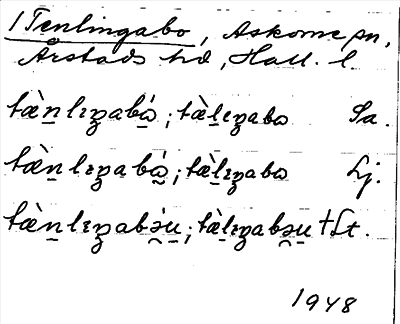 1 Tenlingabo, Askome sn,
Årstads hd, Hall. l.
tæ̀n̲lɪŋabɷ̲́; tæ̀l̲ɪŋabɷ Sa.
tæ̀n̲lɪŋabɷ̲́; tæ̀l̲ɪŋabɷ Lj.
tæ̀n̲lɪŋabə́u̲; tæ̀l̲ɪŋabəu̲ †Lt.
1948